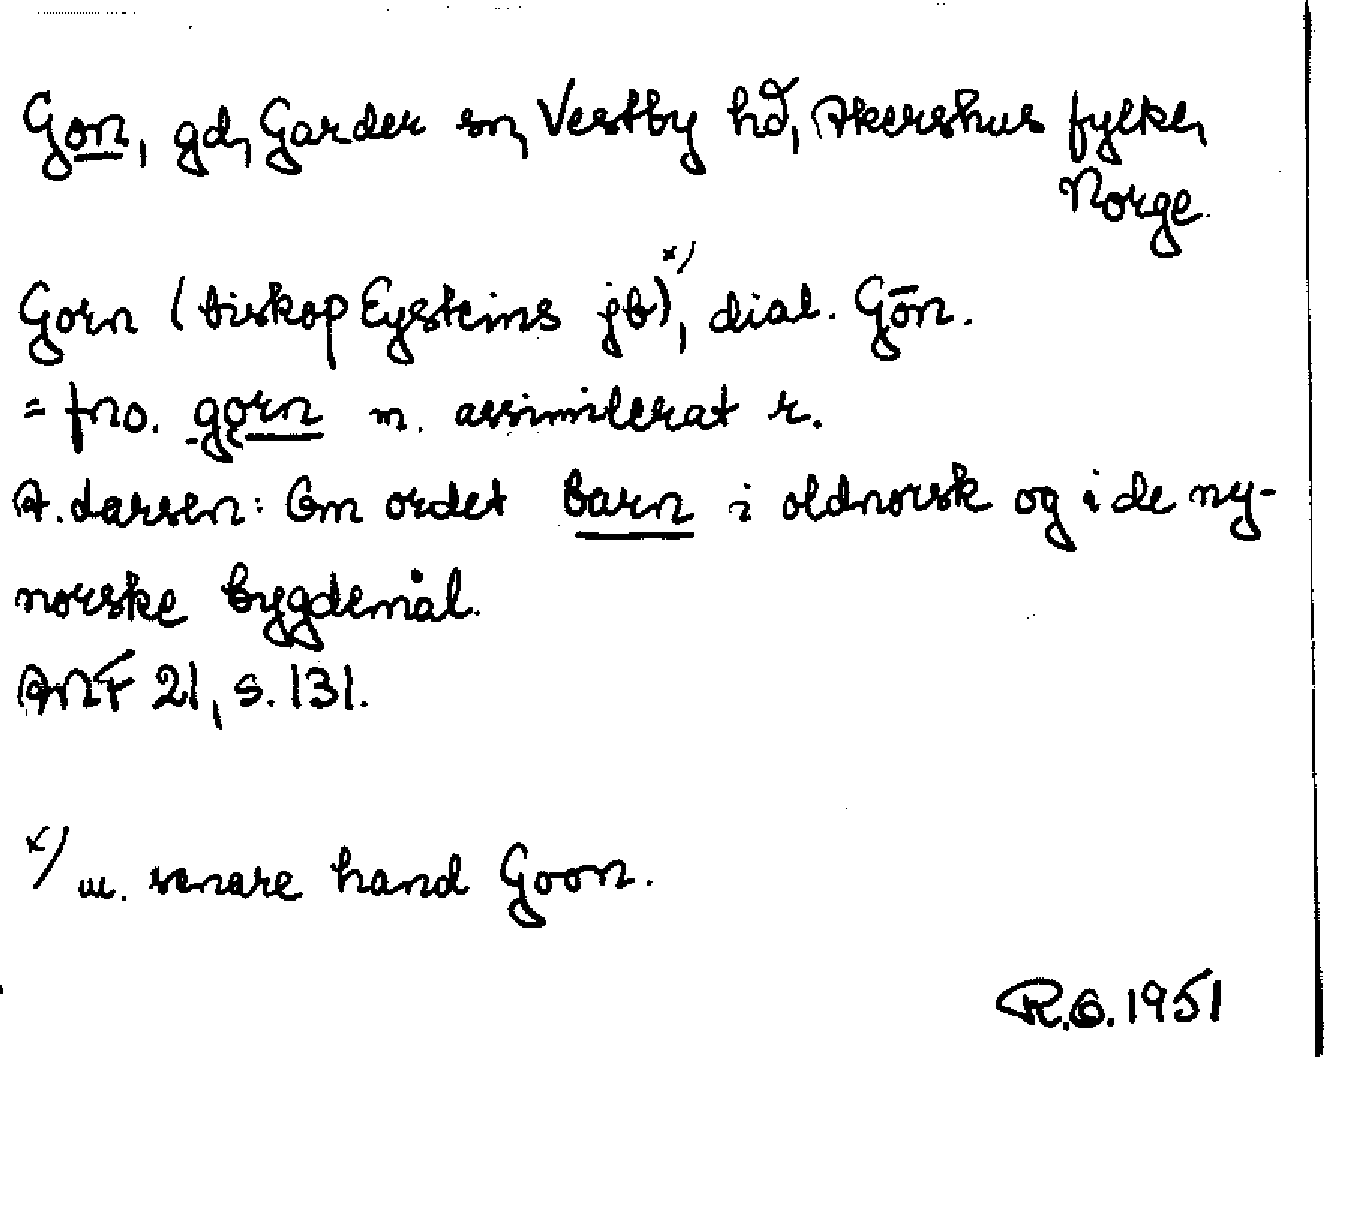 Gon, gd, Garder sn, Vestby hd, Akershus fylke,
Norge.
Gorn (biskop Eysteins jb)x), dial. Gōn.
= fno. gǫrn m. assimilerat r.
A. Larsen: Om ordet barn i oldnorsk og i de ny-
norske bygdemål.
ANF 21, s. 131.
x) m. senare hand Goon.
R.G. 1951